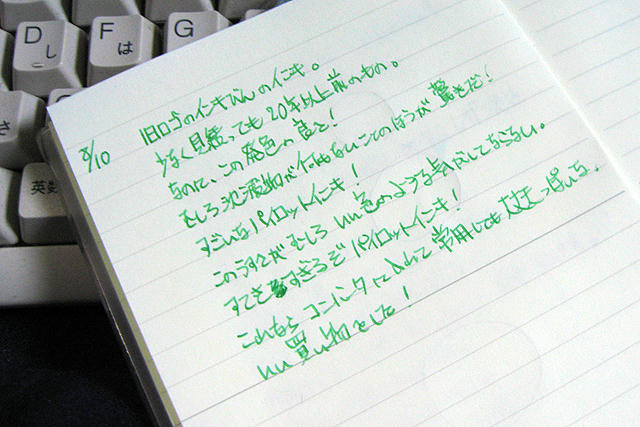 D し
F は
G
さ
英数
8/10
旧ロゴのインキびんのインキ。
少なく見積っても20年以上前のもの。
なのに、この発色の良さ!
むしろ沈澱物が何もないことのほうが驚きだ!
すごいなパイロットインキ!
このうすさがむしろいい色のような気がしてならない。
すてきすぎるぞパイロットインキ!
これならコンバータに入れて常用しても大丈夫っぽいな。
いい買い物をした!